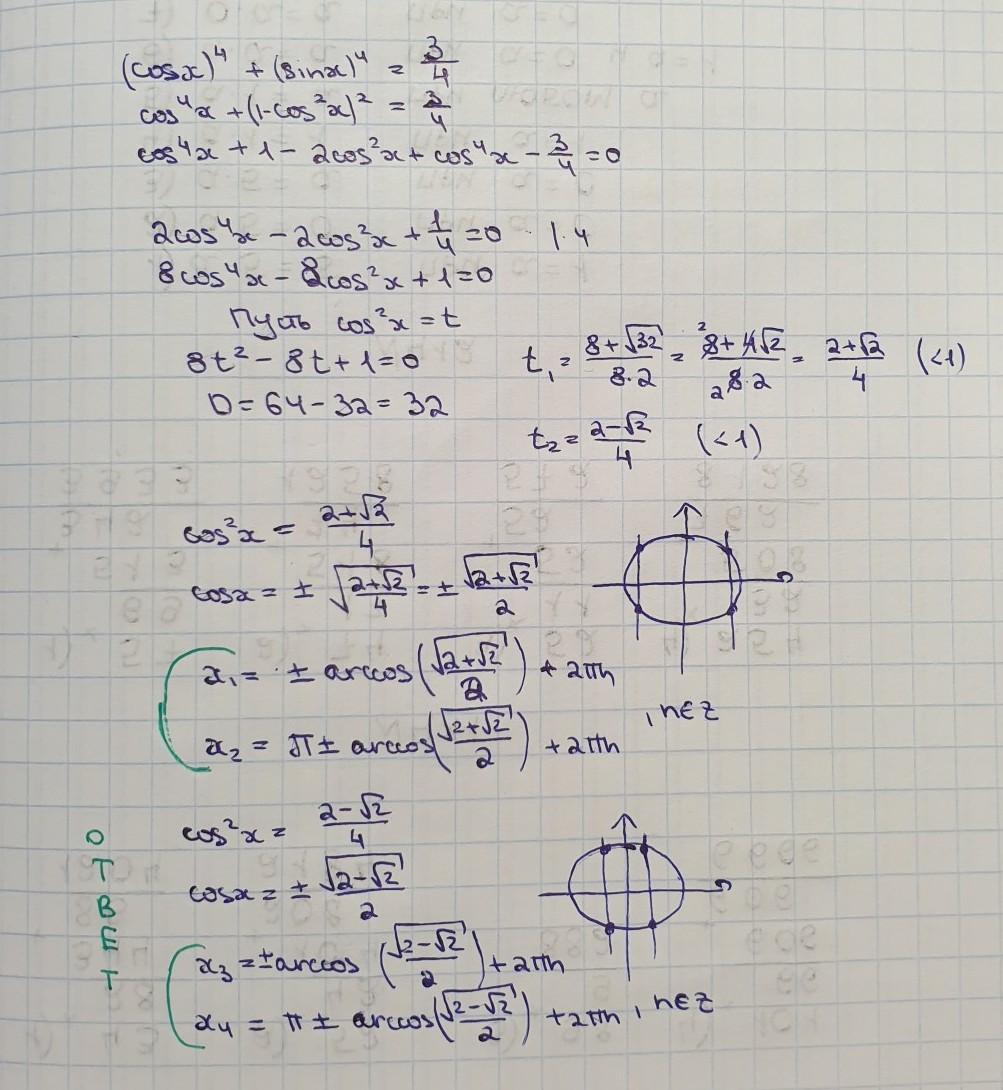 (cosx)⁴ + (sinx)⁴ = 3/4
cos⁴x + (1-cos²x)² = 3/4
cos⁴x + 1 - 2cos²x + cos⁴x - 3/4 = 0
2cos⁴x - 2cos²x + 1/4 = 0 | · 4
8cos⁴x - 8cos²x + 1 = 0
Пусть cos²x = t
8t² - 8t + 1 = 0
D = 64 - 32 = 32
t₁ = (8 + √32)/(8·2) = (8 + 4√2)/(8·2) = (2+√2)/4 (<1)
t₂ = (2-√2)/4 (<1)
cos²x = (2+√2)/4
cosx = ± √((2+√2)/4) = ± √(2+√2)/2
x₁ = ± arccos(√(2+√2)/2) + 2πn
x₂ = π ± arccos(√(2+√2)/2) + 2πn
, n∈Z
cos²x = (2-√2)/4
cosx = ± √(2-√2)/2
x₃ = ± arccos(√(2-√2)/2) + 2πn
x₄ = π ± arccos(√(2-√2)/2) + 2πn , n∈Z
ОТВЕТ